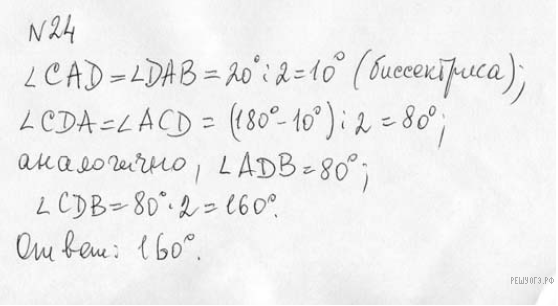 N24
∠CAD=∠DAB=20°:2=10° (биссектриса);
∠CDA=∠ACD=(180°-10°):2=80°;
аналогично, ∠ADB=80°;
∠CDB=80°·2=160°.
Ответ: 160°.
РЕШУОГЭ.РФ